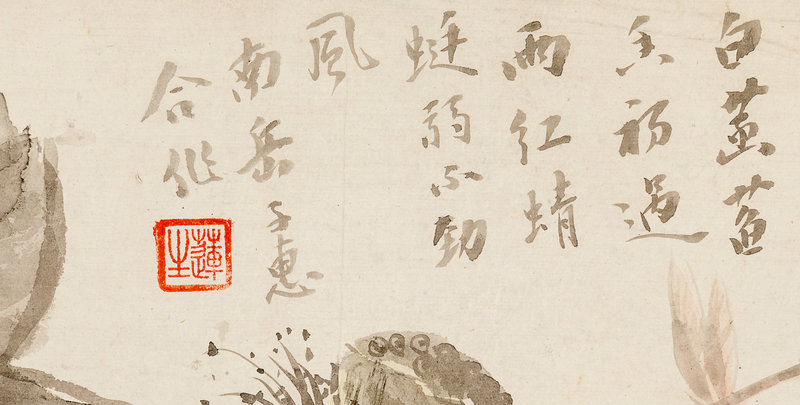 白菡萏
香初過
雨紅蜻
蜓弱不勁
風
南岳子惠
合作
蓮